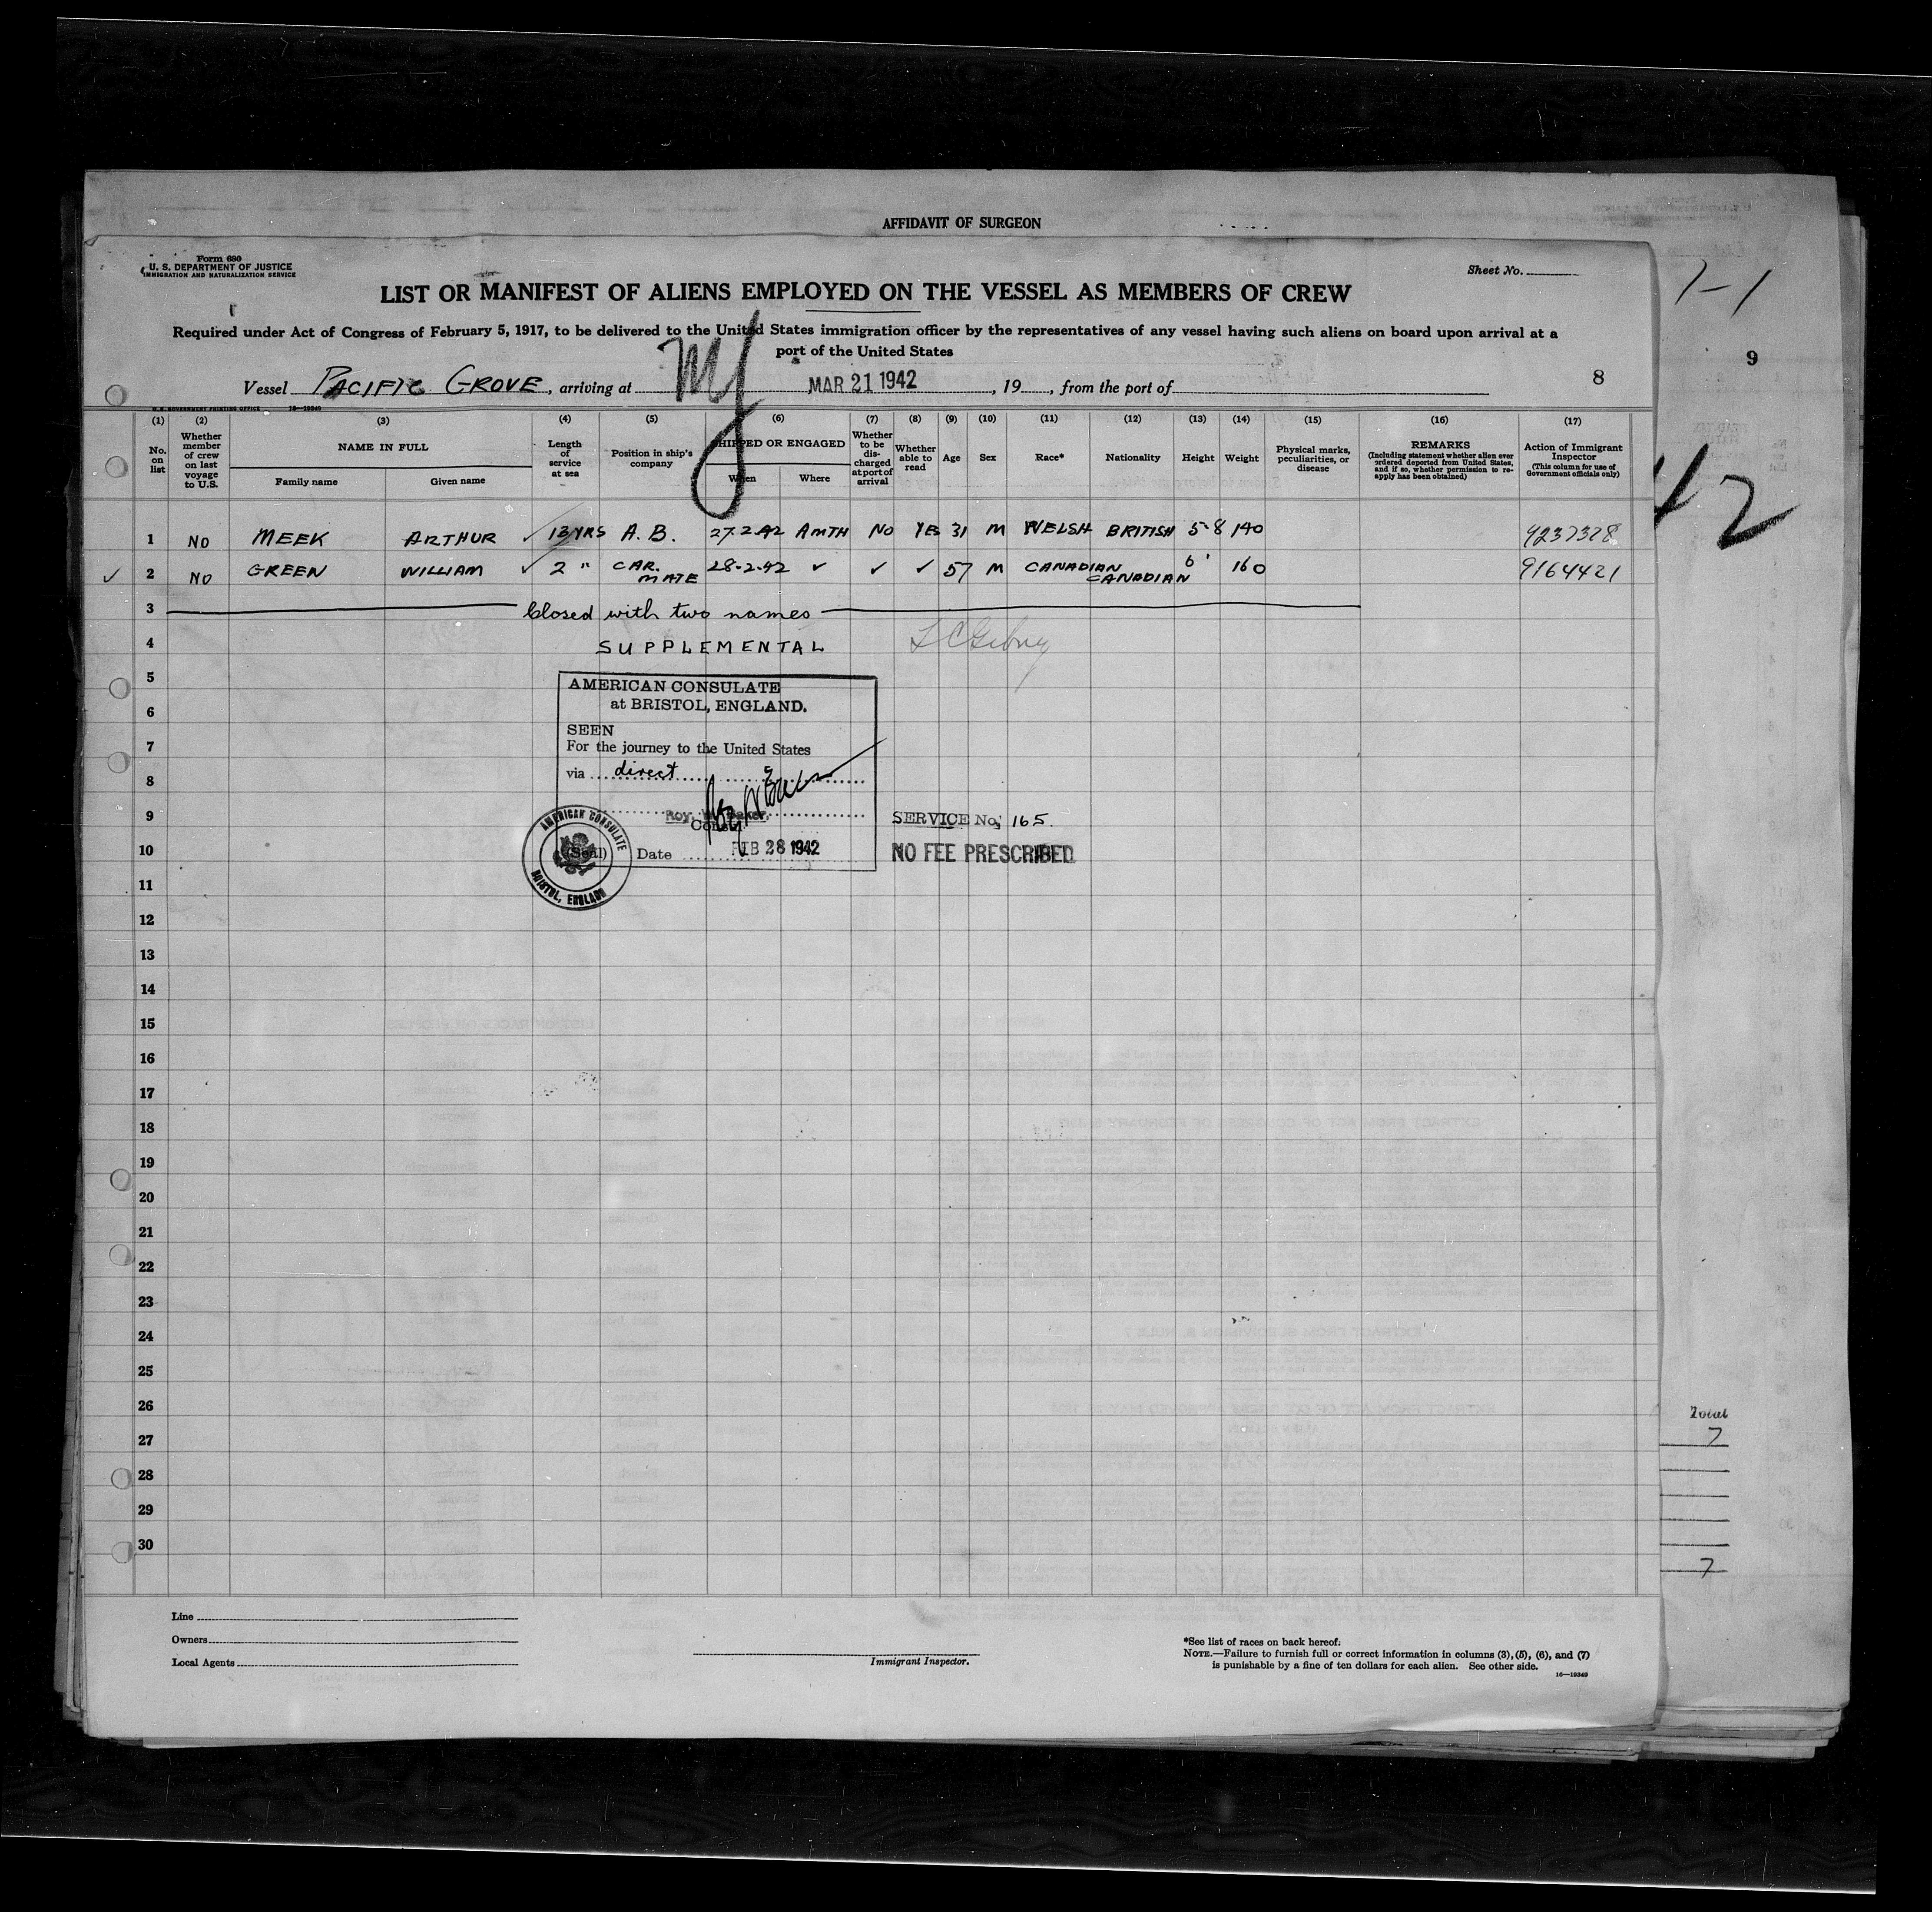 AFFIDAVIT OF SURGEON
Form 680
U. S. DEPARTMENT OF JUSTICE
IMMIGRATION AND NATURALIZATION SERVICE
Sheet No.
1-1
LIST OR MANIFEST OF ALIENS EMPLOYED ON THE VESSEL AS MEMBERS OF CREW
Required under Act of Congress of February 5, 1917, to be delivered to the United States immigration officer by the representatives of any vessel having such aliens on board upon arrival at a
port of the United States
9
Vessel PACIFIC GROVE, arriving at NY MAR 21 1942, 19, from the port of
8
U.S. GOVERNMENT PRINTING OFFICE 16—19349
(1) (2) (3) (4) (5) (6) (7) (8) (9) (10) (11) (12) (13) (14) (15) (16) (17)
No. on list
Whether member of crew on last voyage to U.S.
NAME IN FULL
Family name
Given name
Length of service at sea
Position in ship's company
SHIPPED OR ENGAGED
When
Where
Whether to be discharged at port of arrival
Whether able to read
Age
Sex
Race*
Nationality
Height
Weight
Physical marks, peculiarities, or disease
REMARKS
(Including statement whether alien ever ordered deported from United States, and if so, whether permission to reapply has been obtained)
Action of Immigrant Inspector
(This column for use of Government officials only)
42
1 NO MEEK ARTHUR ✓ 13 YRS A. B. 27.2.42 AMTH NO YES 31 M WELSH BRITISH 5-8 140 4237328
✓ 2 NO GREEN WILLIAM ✓ 2 " CAR. MATE 28.2.42 ✓ ✓ ✓ 57 M CANADIAN CANADIAN 6' 160 9164421
3 Closed with two names
4 SUPPLEMENTAL
5
AMERICAN CONSULATE
at BRISTOL, ENGLAND.
6
SEEN
7
For the journey to the United States
via direct
8
9
Roy W. Baker
Consul
SERVICE No. 165
10
(Seal) Date FEB 28 1942
NO FEE PRESCRIBED
AMERICAN CONSULATE
BRISTOL, ENGLAND
11
12
13
14
15
16
17
18
19
20
21
22
23
24
25
26
27
28
29
30
Total
7
7
Line
Owners
Local Agents
Immigrant Inspector.
*See list of races on back hereof.
NOTE.—Failure to furnish full or correct information in columns (3), (5), (6), and (7)
is punishable by a fine of ten dollars for each alien. See other side.
16—19349